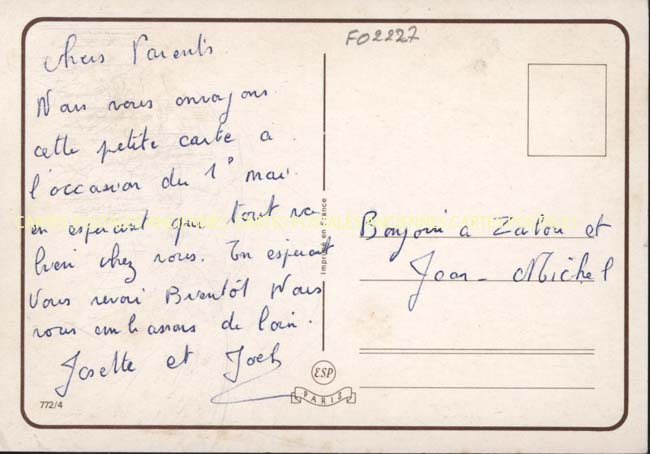 Chers Parents
Nous vous envoyons
cette petite carte a
l'occasion du 1° mai.
en esperant que tout va
bien chez vous. En esperant
Vous revoir Bientôt Nous
vous embrassons de loin.
Josette et Joel
772/4
FO2227
Imprimé en France
ESP
PARIS
Bonjour a Zalou et
Jean-Michel